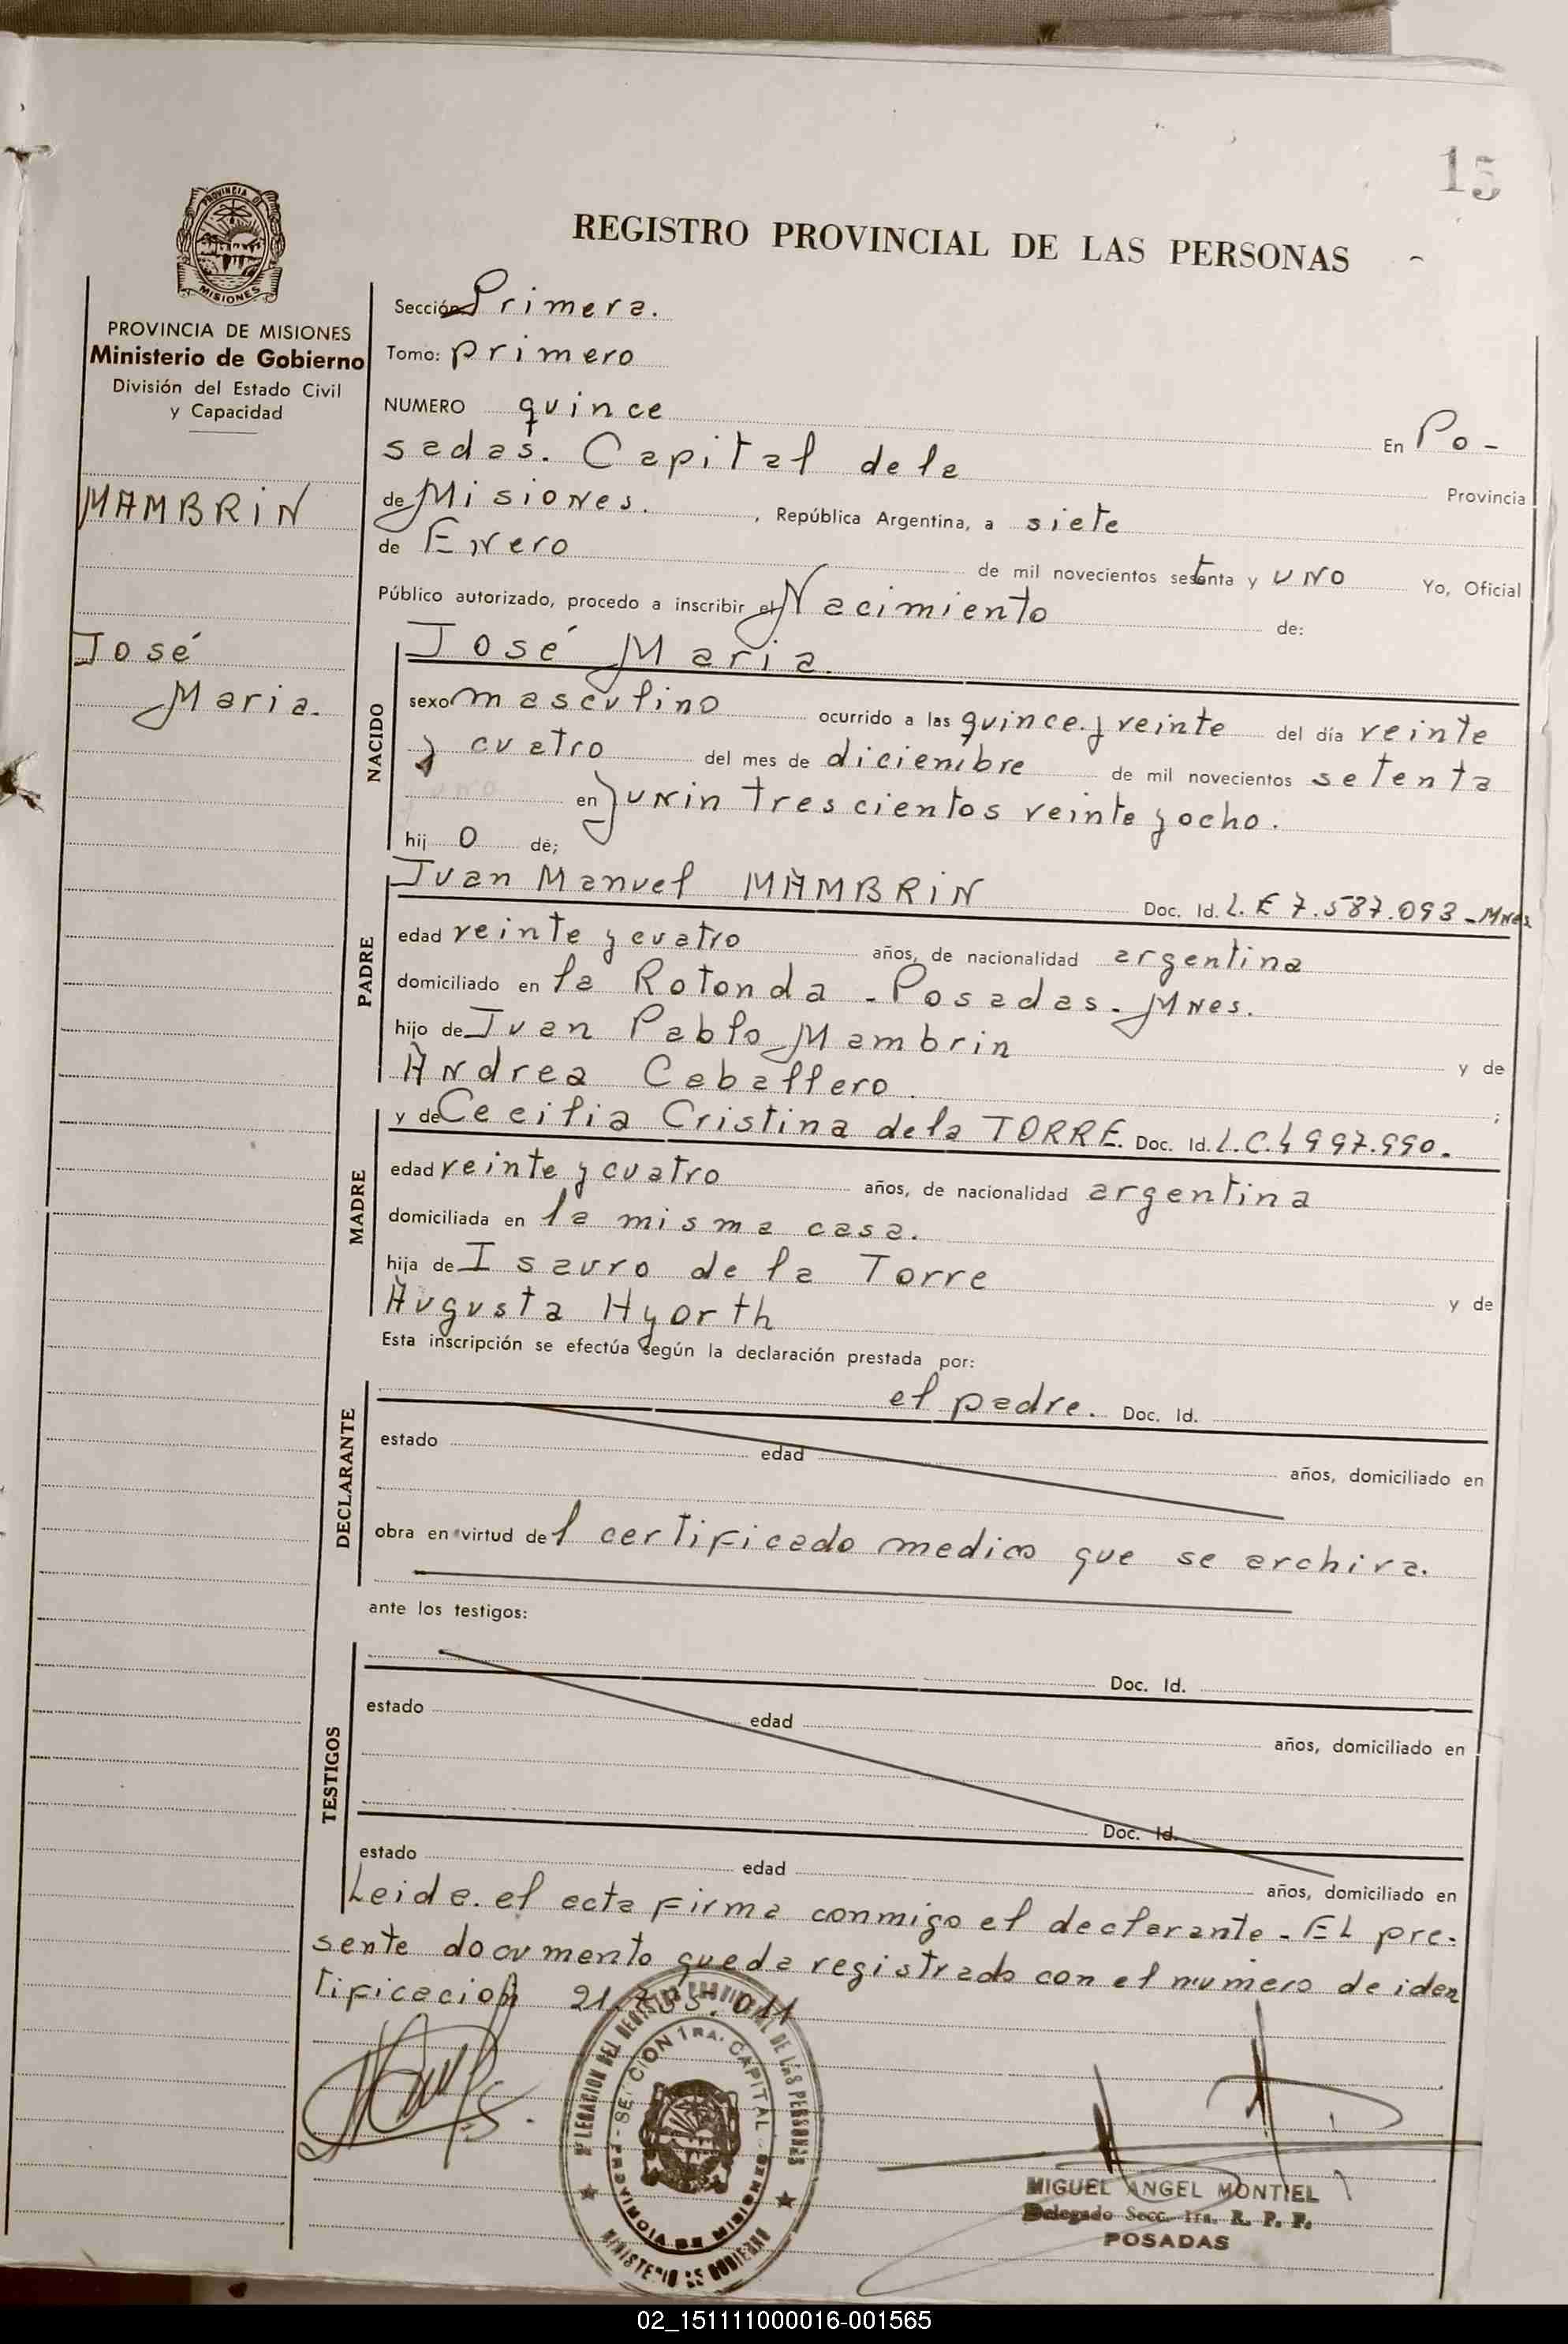 15
PROVINCIA DE
MISIONES
REGISTRO PROVINCIAL DE LAS PERSONAS
PROVINCIA DE MISIONES
Ministerio de Gobierno
División del Estado Civil
y Capacidad
MAMBRIN
José
Maria.
Sección Primera.
Tomo: primero
NUMERO quince En Po-
sadas. Capital de la Provincia
de Misiones. , República Argentina, a siete
de Enero de mil novecientos setenta y uno Yo, Oficial
Público autorizado, procedo a inscribir el Nacimiento de:
NACIDO
José Maria.
sexo masculino ocurrido a las quince y veinte del día veinte
y cuatro del mes de diciembre de mil novecientos setenta
en Junin trescientos veinte y ocho.
hij o de;
PADRE
Juan Manuel MAMBRIN Doc. Id. L. E 7.587.093 - Mnes
edad veinte y cuatro años, de nacionalidad argentina
domiciliado en la Rotonda - Posadas - Mnes.
hijo de Juan Pablo Mambrin y de
Andrea Caballero. ;
MADRE
y de Cecilia Cristina de la TORRE. Doc. Id. L.C.4997.990.
edad veinte y cuatro años, de nacionalidad argentina
domiciliada en la misma casa.
hija de Isauro de la Torre y de
Augusta Hyorth
Esta inscripción se efectúa según la declaración prestada por:
DECLARANTE
el padre. Doc. Id.
estado edad años, domiciliado en
obra en virtud del certificado medico que se archiva.
ante los testigos:
TESTIGOS
Doc. Id.
estado edad años, domiciliado en
Doc. Id.
estado edad años, domiciliado en
Leida el acta firma conmigo el declarante - El pre-
sente documento queda registrado con el numero de iden
tificacion
DELEGACION DEL REGISTRO PROVINCIAL DE LAS PERSONAS
SECCION 1RA. CAPITAL - PROVINCIA DE MISIONES
MINISTERIO DE GOBIERNO
MIGUEL ANGEL MONTIEL
Delegado Secc. 1ra. R. P. P.
POSADAS
02_151111000016-001565